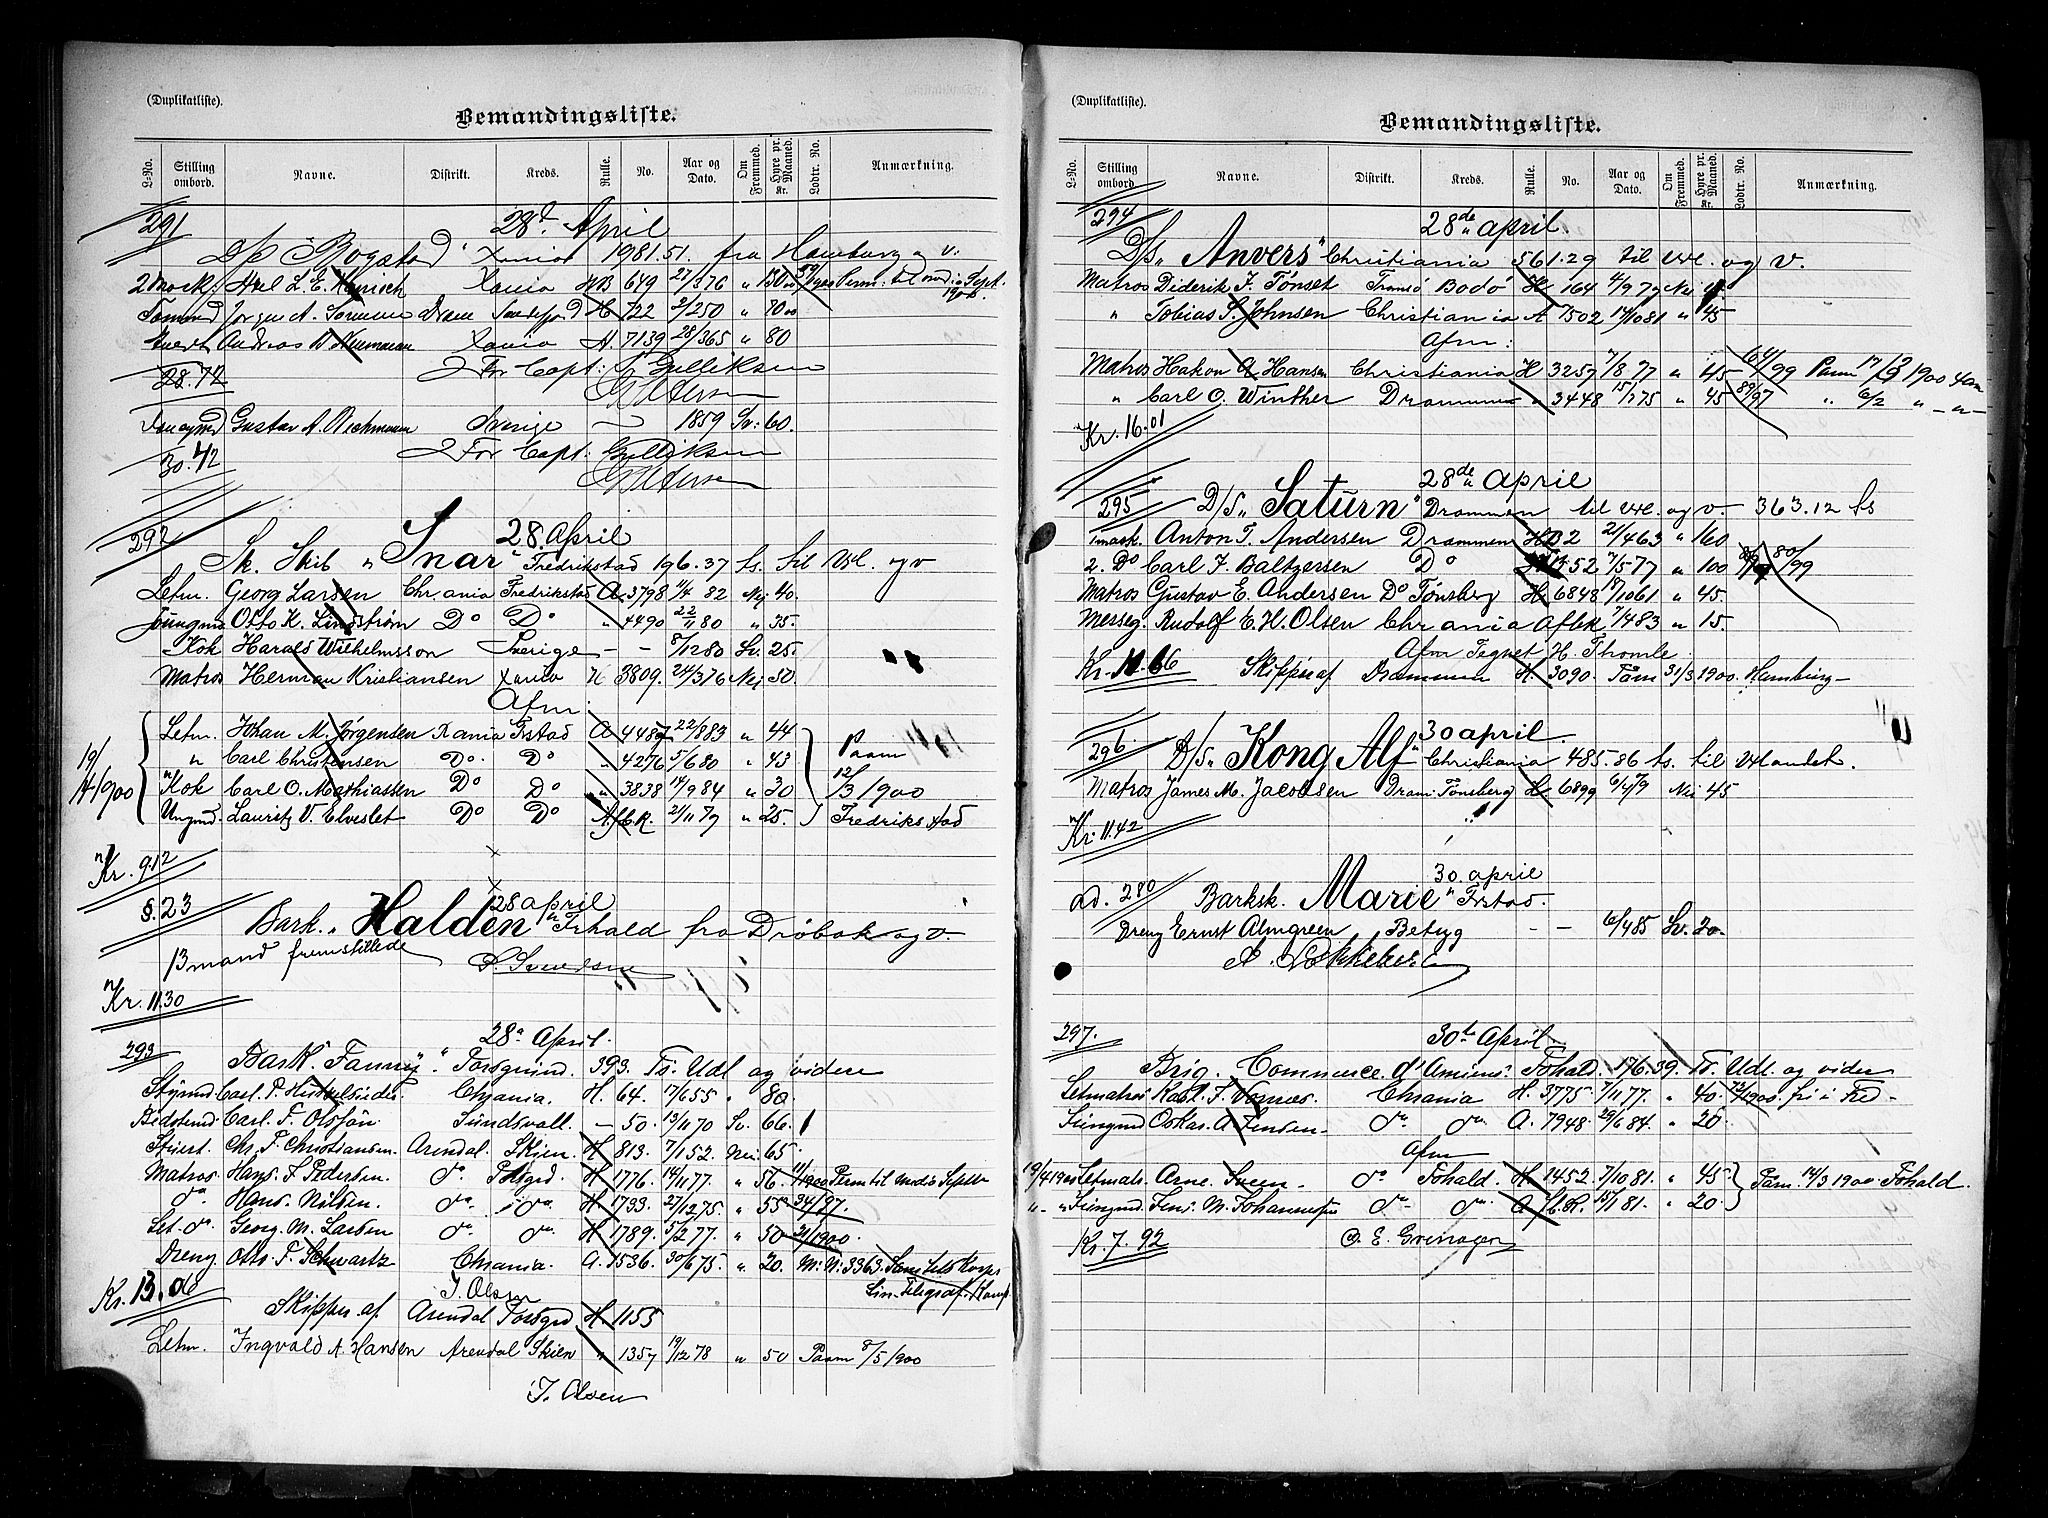 (Duplikatliste).
Bemandingsliste.
L-No. Stilling ombord. Navne. Distrikt. Kreds. Rulle. No. Aar og Dato. Om Fremmed. Hyre pr. Maaned. Kr. Lodtr. No. Anmærkning.
291 28d. April
D/S "Bogstad" Xania 1981.51. fra Hamburg og v:
2 Xania HB 649 27/2 76 " 130
Jørgen A. Dram H 722 2/2 50 " 80
Andreas Neumann Xania A. 7139 28/3 65 " 80
28.72 For Capt: Gulliksen
Gustav A. Sverige 1859 Sv: 60.
30.42 For Capt: Gulliksen
292 28. April
Sk. Skib "Snar" Fredrikstad 196.37 ts. til Udl. og v
Letm. Georg Larsen Chrania Fredrikstad A 3798 11/4 82 Nei 40.
Jungmd Otto K. Lindstrøm Do Do " 4490 22/11 80 " 35.
Kok Harald Wilhelmsson Sverige - - 8/12 80 Sv. 25.
Matros Herman Kristiansen Xania H 3809. 24/3 76 Nei 50.
Afm:
Letm. Johan M. Jørgensen Xania Frstad A 4487 22/8 83 " 44
" Carl Christensen Do. Do " 4276 5/6 80 " 43 Paam
19/4 1900 Kok Carl O. Mathiassen Do Do " 3838 14/9 84 " 30 12/3 1900
Ungmd. Lauritz V. Elveslet Do Do Afbk. 2/11 79 " 25. Fredrikstad
Kr. 9.12
§. 23 28 april
Bark. "Halden" Frhald fra Drøbak og v.
13 mand fremstillede
Kr. 11.30
293 28. April.
Bark "Fanny" Porsgrund. 393. Ts. Udl og videre
Styrmd Carl. P. Chrania. H. 64. 17/6 55 " 80.
Bedstmd. Carl. F. Olsson. Sundsvall. - 50. 13/11 70 Sv. 66.
Stuert. Chr. F. Christiansen. Arendal. Skien. H 813. 7/1 52. Nei. 65.
Matros. Hans. F. Pedersen. do Porsgrd. H. 1776. 14/11 77. " 56. 11/1900 Perm til medio Septbr
do Hans. Nilsen. do. do. H. 1733. 27/12 75. " 55. 34/97.
Let. do. Georg. M. Larsen do. do. H. 1789. 5/2 77. " 50 21/1900.
Dreng. Otto. F. Schwartz Chrania. A. 1536. 30/6 75. " 20. M: N: 3363.
Kr. 13.06 J. Olsen
Skipper af Arendal Porsgrd H. 1155
Letm. Ingvald A. Hansen Arendal Skien " 1357 19/12 78 " 50 Paam 8/5 1900
J. Olsen
(Duplikatliste).
Bemandingsliste.
L-No. Stilling ombord. Navne. Distrikt. Kreds. Rulle. No. Aar og Dato. Om Fremmed. Hyre pr. Maaned. Kr. Lodtr. No. Anmærkning.
294 28de april
D/S "Anvers" Christiania 561.29 til Udl. og v.
Matros Diderik J. Tønset Tromsö Bodö H 164 4/9 79 Nei
" Tobias S. Johnsen Christiania A 7502 17/10 81 " 45
Afm:
Matros Hakon A Hansen Christiania H 3259 7/8 77 " 45 64/99 Paam 17/3 1900
" Carl O. Winther Drammen " 3448 15/1 75 " 45 89/97 " 6/2 " - " -
Kr. 16.01
295 28de april
D/S "Saturn" Drammen til Udl. og v - 363.12 ts
1mask. Anton T. Andersen Drammen HB 2 21/4 63 " 160
2. Do Carl J. Baltzersen Do 52 7/5 77 " 100 80/99
Matros Gustav E. Andersen Do Tønsberg H 6848 18/10 61 " 45
Messeg. Rudolf E. H. Olsen Chrania Afbk 7/4 83 " 15.
Afm Tegnet H. Thomle.
Kr. 11.66 Skipper af Drammen H. 3090. Paam 31/3 1900. Hamburg -
296. 30 april.
D/S "Kong Alf" Christiania 485.86 ts. til Udlandet.
Matros James M. Jacobsen Dram. Tønsberg H 6899 Nei 45
Kr. 11.42
ad. 280 30. april
Barksk. "Marie" Frstad.
Dreng Ernst Almgreen Betyg - - 6/4 85 Sv. 20.
297. 30te April.
Brig. Commerce d'Amiens. Fhald. 176.39. Ts. Udl og videre
Letmatros Karl. F. Chrania H. 3775. 7/11 77. " 40. 72/1900. fri i Fred -
Jungmd Oskar. A. Jensen. do. do. A. 7948. 29/6 84. " 20.
Afm
19/4 1900 Letmatr. Arne. Sveen. do Fhald. H. 1452. 7/10 81. " 45. Paam. 14/3 1900. Fhald.
" - " Jungmd Jens. M. Johannesen do. do. Afbk. 15/1 81. " 20.
Kr. 7.92